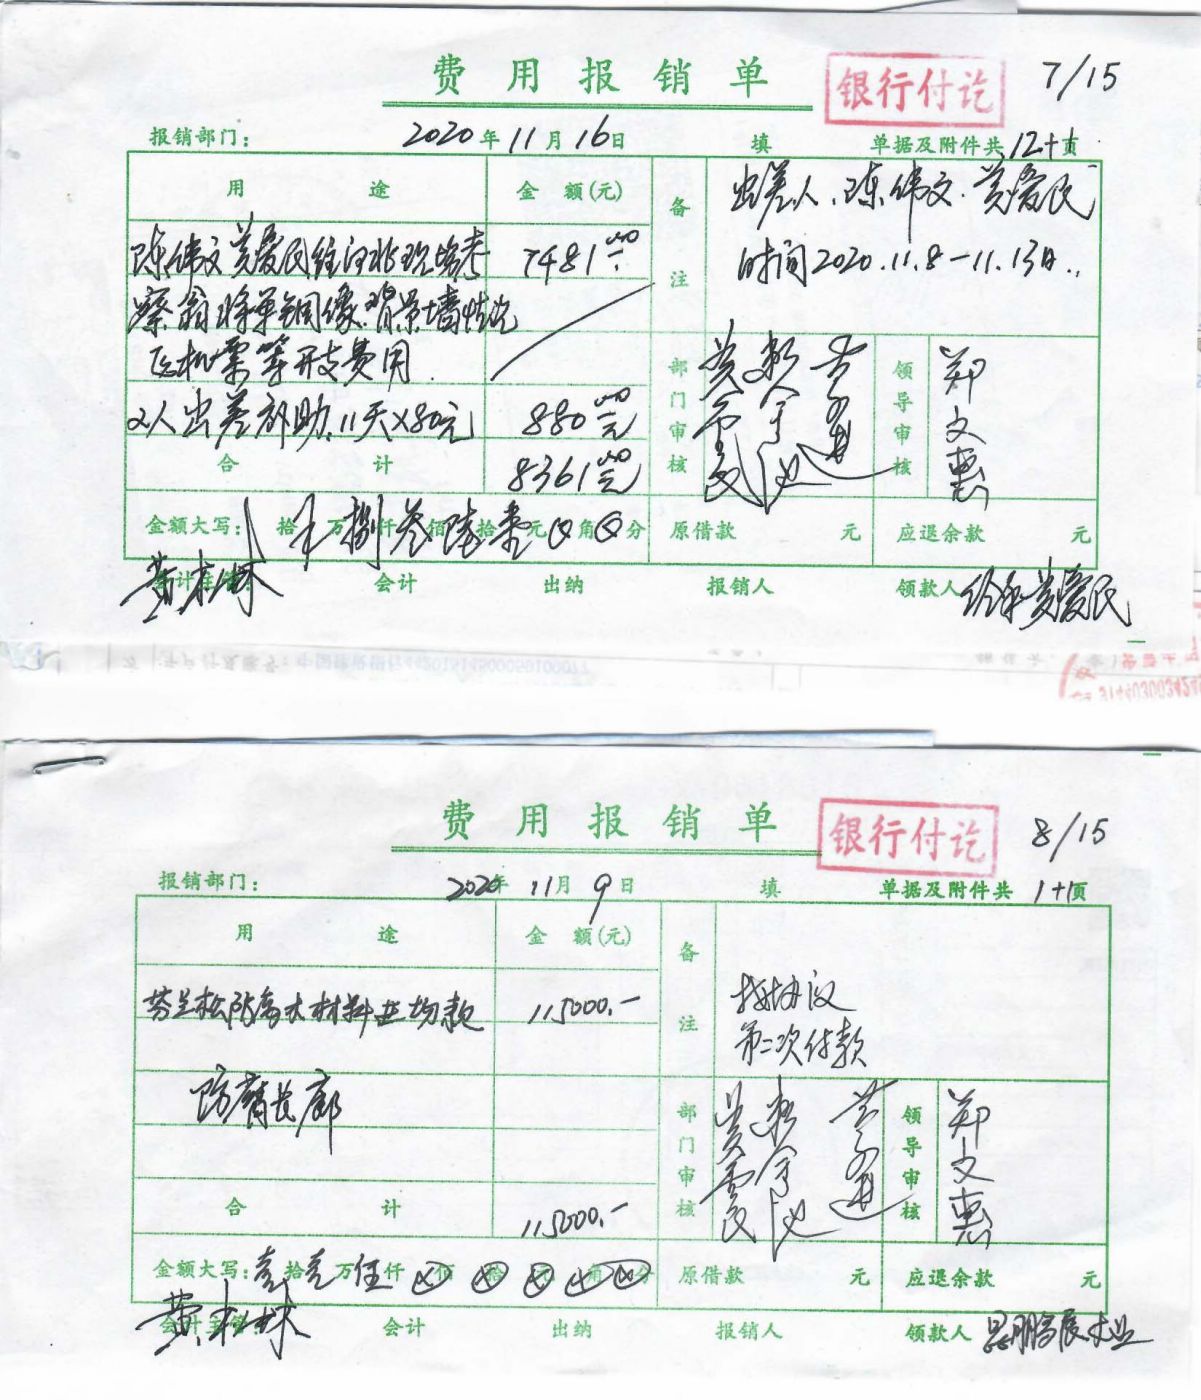 费用报销单
银行付讫
7/15
报销部门:
2020年11月16日
填
单据及附件共12+1页
用途
金额(元)
备注
出差人:陈伟文.黄爱民
时间2020.11.8-11.13日.
陈伟文黄爱民往河北现场考
7481元
察翁将军铜像.背景墙情况
飞机票等开支费用.
2人出差补助.11天×80元
880元
合计
8361元
部门审核
黄爱民
领导审核
郑文惠
金额大写: 拾 万捌仟叁佰陆拾壹元⊗角⊗分
原借款 元
应退余款 元
会计主管:
会计
出纳
报销人
领款人
经手黄爱民
费用报销单
银行付讫
8/15
报销部门:
2020年11月9日
填
单据及附件共1+1页
用途
金额(元)
备注
按协议
第二次付款
芬兰松防腐木材料
115000.-
防腐长廊
部门审核
黄爱民
领导审核
郑文惠
合计
115000.-
金额大写:壹拾壹万伍仟⊗佰⊗拾⊗元⊗角⊗分
原借款 元
应退余款 元
会计主管:
会计
出纳
报销人
领款人
鹏展木业